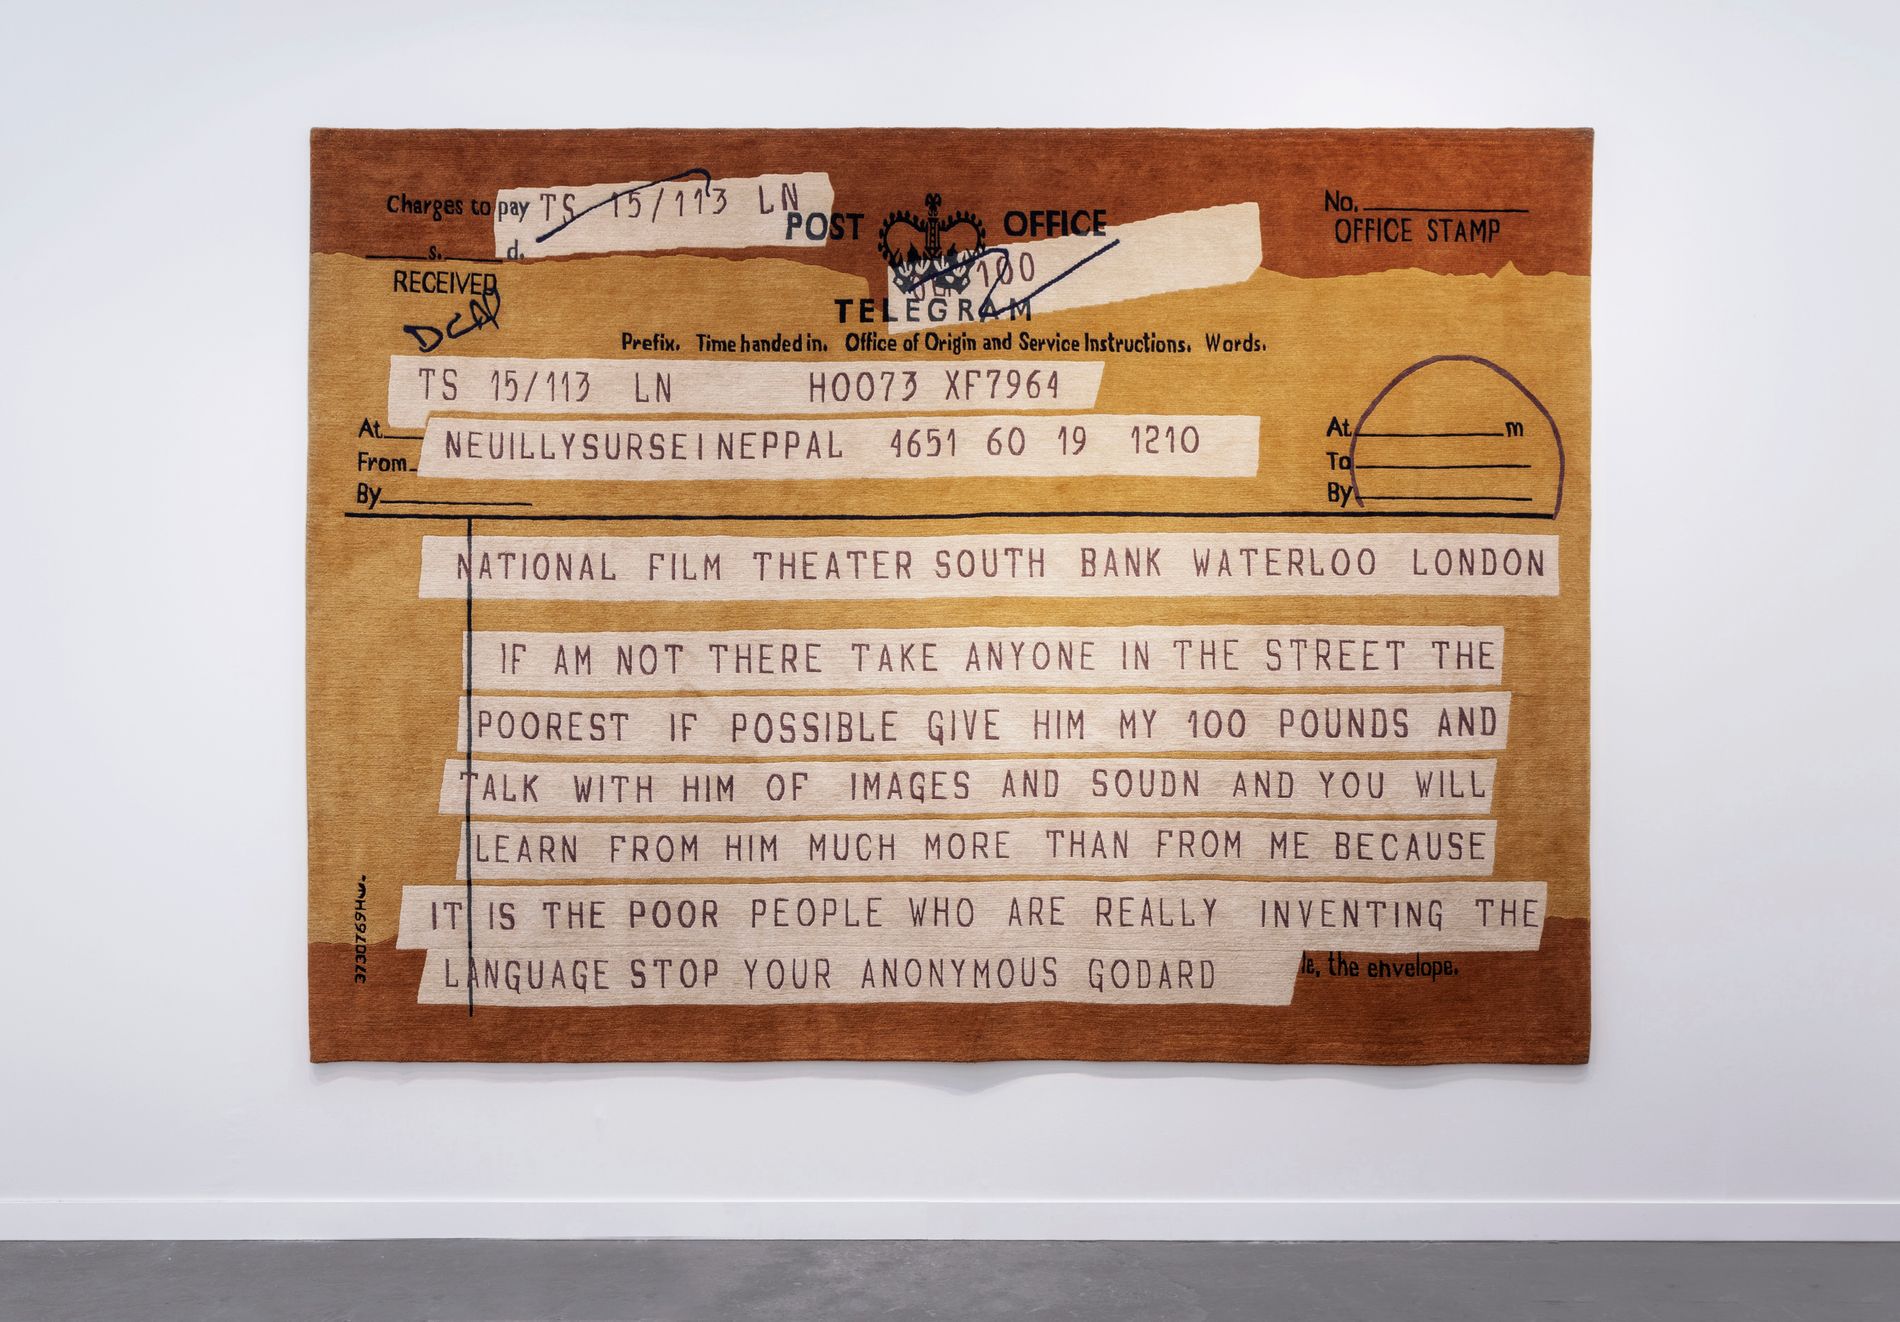 Charges to pay TS 15/113 LN
POST OFFICE
No.
OFFICE STAMP
s. d.
100
RECEIVED
TELEGRAM
Prefix. Time handed in. Office of Origin and Service Instructions. Words.
TS 15/113 LN H0073 XF7964
At m
At
NEUILLYSURSEINEPPAL 4651 60 19 1210
From
To
By
By
NATIONAL FILM THEATER SOUTH BANK WATERLOO LONDON
IF AM NOT THERE TAKE ANYONE IN THE STREET THE
POOREST IF POSSIBLE GIVE HIM MY 100 POUNDS AND
TALK WITH HIM OF IMAGES AND SOUDN AND YOU WILL
LEARN FROM HIM MUCH MORE THAN FROM ME BECAUSE
IT IS THE POOR PEOPLE WHO ARE REALLY INVENTING THE
LANGUAGE STOP YOUR ANONYMOUS GODARD
le, the envelope.